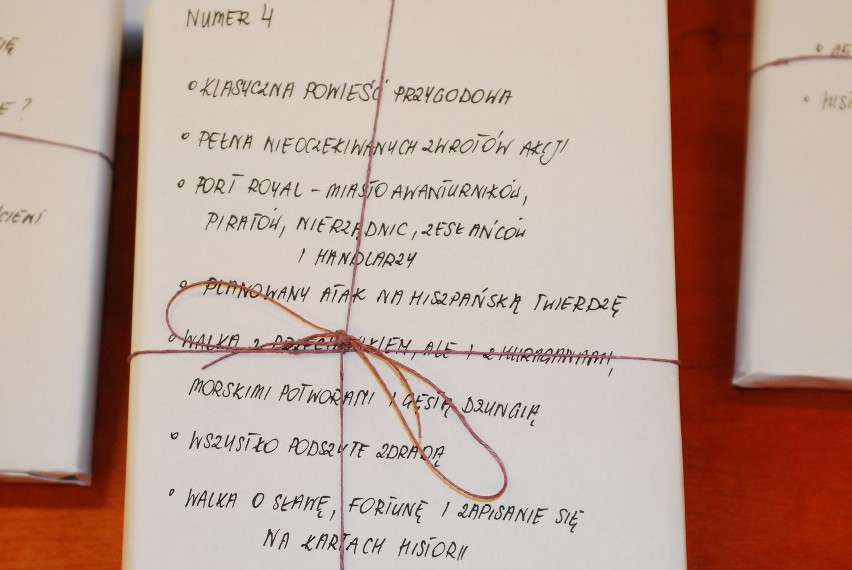 NUMER 4
• KLASYCZNA POWIEŚĆ PRZYGODOWA
• PEŁNA NIEOCZEKIWANYCH ZWROTÓW AKCJI
• PORT ROYAL - MIASTO AWANTURNIKÓW,
PIRATÓW, NIERZĄDNIC, ZESŁAŃCÓW
I HANDLARZY
• PLANOWANY ATAK NA HISZPAŃSKĄ TWIERDZĘ
• WALKA Z PRZECIWNIKIEM, ALE I Z HURAGANAMI,
MORSKIMI POTWORAMI I GĘSTĄ DŻUNGLĄ
• WSZYSTKO PODSZYTE ZDRADĄ
• WALKA O SŁAWĘ, FORTUNĘ I ZAPISANIE SIĘ
NA KARTACH HISTORII